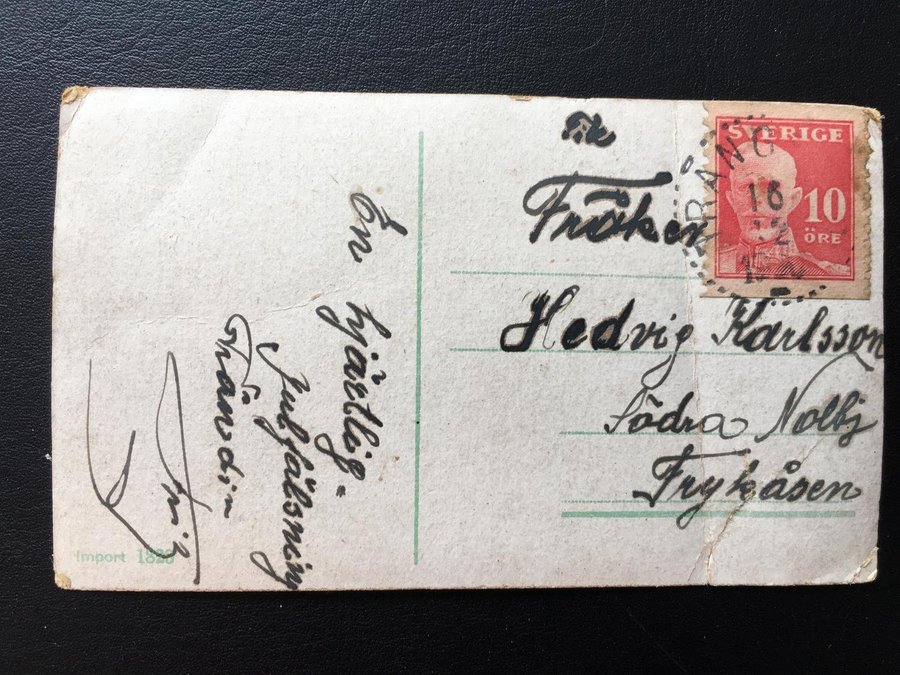 En hjärtlig=
julhälsning
från din
Import 1828
Fröken
Hedvig Karlsson
Södra Nolby
Frykåsen
SVERIGE
10
ÖRE
RANG
16
12